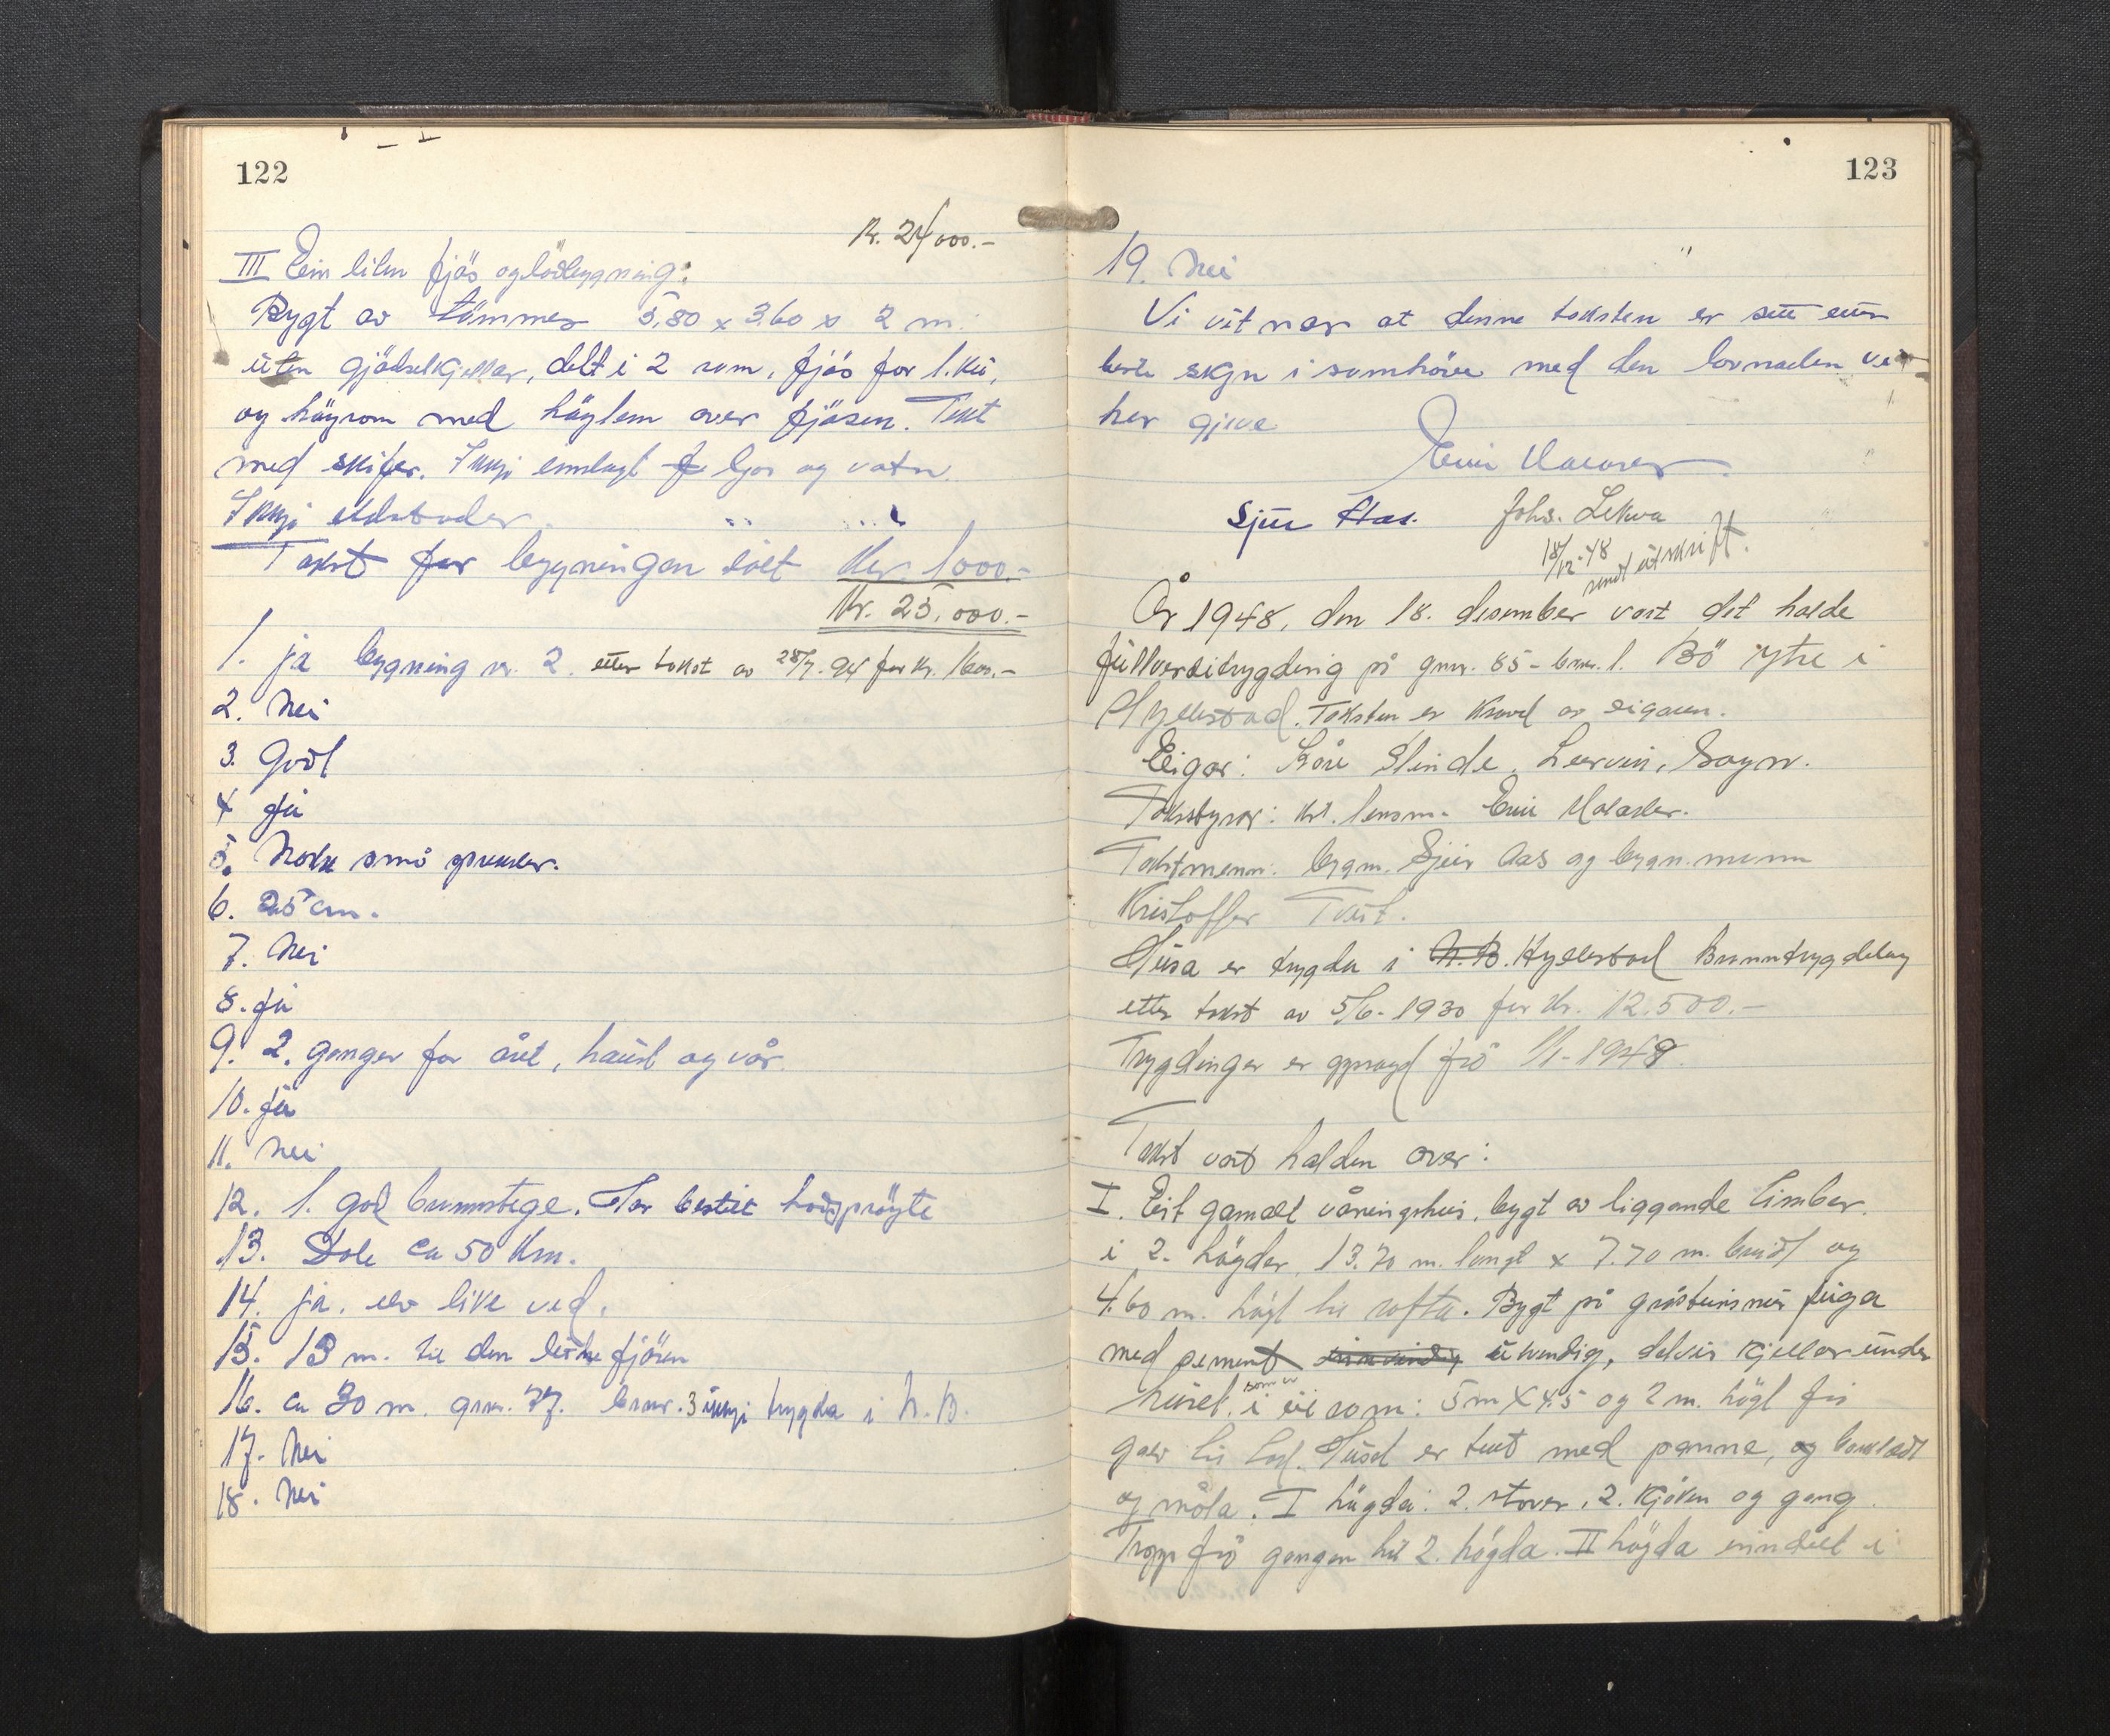 122
Kr. 24000.-
III Ein liten fjös og löebygning.
Bygt av tömmer 5,80 x 3.60 x 2 m.
uten gjödselkjellar, delt i 2 rom, fjös for 1. kü,
og höyrom med höylem over fjösen. Tekt
med skifer. Inkje innlagt ljos og vatn.
Inkje eldstader.
Takst for bygningen sett Kr. 1000.-
Kr. 25.000.-
1. ja bygning nr. 2. etter takst av 28/7. for kr.
2. Nei
3. Godt
4 ja
5. Nokre små
6. 25 cm.
7. Nei
8. ja
9. 2. gonger for året, haust og vår.
10. ja
11. Nei
12. 1. god brannstege. Har
13. Dale ca 50 km.
14. ja. elv like ved.
15. 13 m. til den fjösen
16. ca 30 m. gnr. 77. bnr. 3 inkje trygda i N. B.
17. Nei
18. Nei
123
19. Nei
Vi vitnar at denne taksten er sett etter
beste skjn i samhöve med den lovnaden vi
her gjeve
Sjur Aas. Johs. Lekva
18/12-48
sendt utskrift.
År 1948, den 18. desember vart det halde
fullverditrygding på gnr. 85 - bnr. 1. Bö ytre i
Hyllestad. Taksten er kravd av eigaren.
Eigar: Kåre Slinde, Leirvik, Sogn.
Takststyrar: kst. lensm.
Takstmenn: bygm. Sjur Aas og bygn. mann
Kristoffer Tveit.
Husa er trygda i N.B. Hyllestad Branntrygdelag
etter takst av 5/6-1930 for Kr. 12.500.-
Trygdinga er uppsagd frå 1/1-1949.
Takst vart halden over:
I. Eit gamalt våningshus, bygt av liggande timber.
i 2. högder, 13.70 m. langt x 7.70 m. breidt og
4.60 m. högt til rafta. Bygt på gråsteinsmur fuga
med sement innvendig utvendig, delvis kjellar under
huset, som er i eit rom: 5 m x 4.5 og 2 m. högt frå
golv til tak. Huset er tekt med panne, og bordkledt
og måla. I högda: 2. stover, 2. kjöken og gang.
Tropp frå gangen til 2. högda. II högda inndelt i